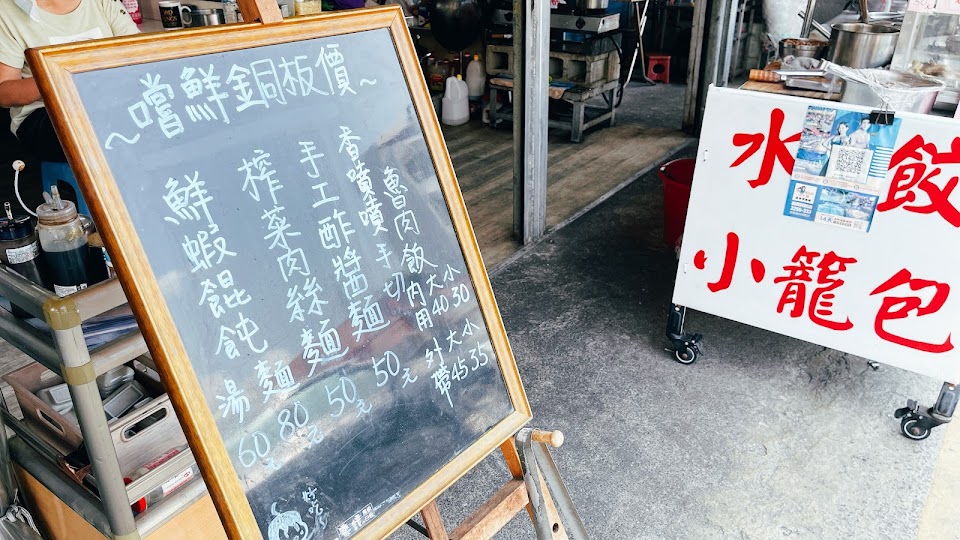 ~嚐鮮銅板價~
香噴噴手切
魯肉飯 內用 大40 小30 外帶 大45 小35
手工酢醬麵 50元
榨菜肉絲麵 50元
鮮蝦餛飩 湯60 麵80元
好吃
水餃
小籠包